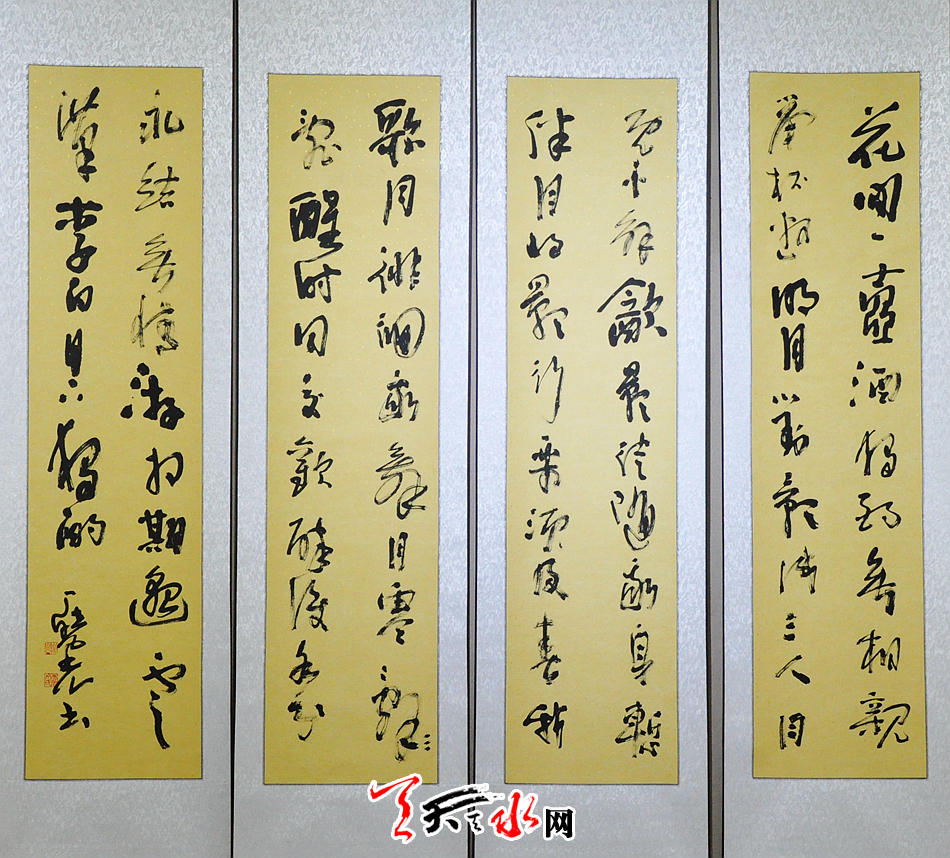 花間一壺酒獨酌無相親
舉杯邀明月對影三人月
既不解飲影徒隨我身暫
伴月將影行樂須及春我
歌月徘徊我舞月零
亂醒時同交歡醉後各分
永結無情游相期邈雲
漢李白月下獨酌
書
天天水网